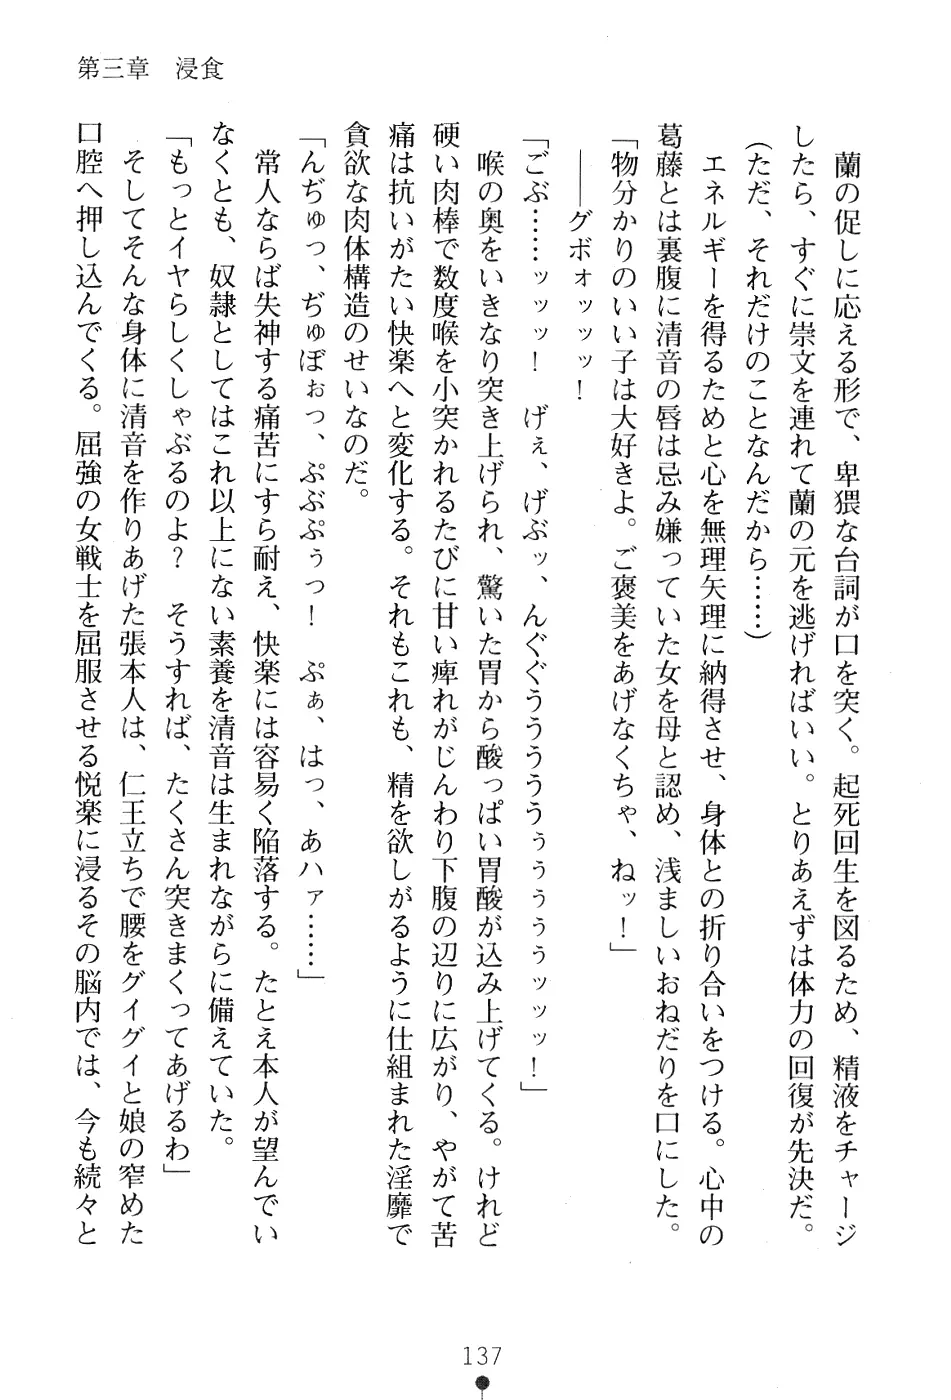 第三章　浸食
蘭の促しに応える形で、卑猥な台詞が口を突く。起死回生を図るため、精液をチャージ
したら、すぐに崇文を連れて蘭の元を逃げればいい。とりあえずは体力の回復が先決だ。
（ただ、それだけのことなんだから……）
エネルギーを得るためと心を無理矢理に納得させ、身体との折り合いをつける。心中の
葛藤とは裏腹に清音の唇は忌み嫌っていた女を母と認め、浅ましいおねだりを口にした。
「物分かりのいい子は大好きよ。ご褒美をあげなくちゃ、ねッ！」
――グボォッッッ！
「ごぶ……ッッッ！　げぇ、げぶッ、んぐぐうううぅぅぅぅッッッ！」
喉の奥をいきなり突き上げられ、驚いた胃から酸っぱい胃酸が込み上げてくる。けれど
硬い肉棒で数度喉を小突かれるたびに甘い痺れがじんわり下腹の辺りに広がり、やがて苦
痛は抗いがたい快楽へと変化する。それもこれも、精を欲しがるように仕組まれた淫靡で
貪欲な肉体構造のせいなのだ。
「んぢゅっ、ぢゅぼぉっ、ぷぶぷぅっ！　ぷぁ、はっ、あハァ……」
常人ならば失神する痛苦にすら耐え、快楽には容易く陥落する。たとえ本人が望んでい
なくとも、奴隷としてはこれ以上にない素養を清音は生まれながらに備えていた。
「もっとイヤらしくしゃぶるのよ？　そうすれば、たくさん突きまくってあげるわ」
そしてそんな身体に清音を作りあげた張本人は、仁王立ちで腰をグイグイと娘の窄めた
口腔へ押し込んでくる。屈強の女戦士を屈服させる悦楽に浸るその脳内では、今も続々と
137